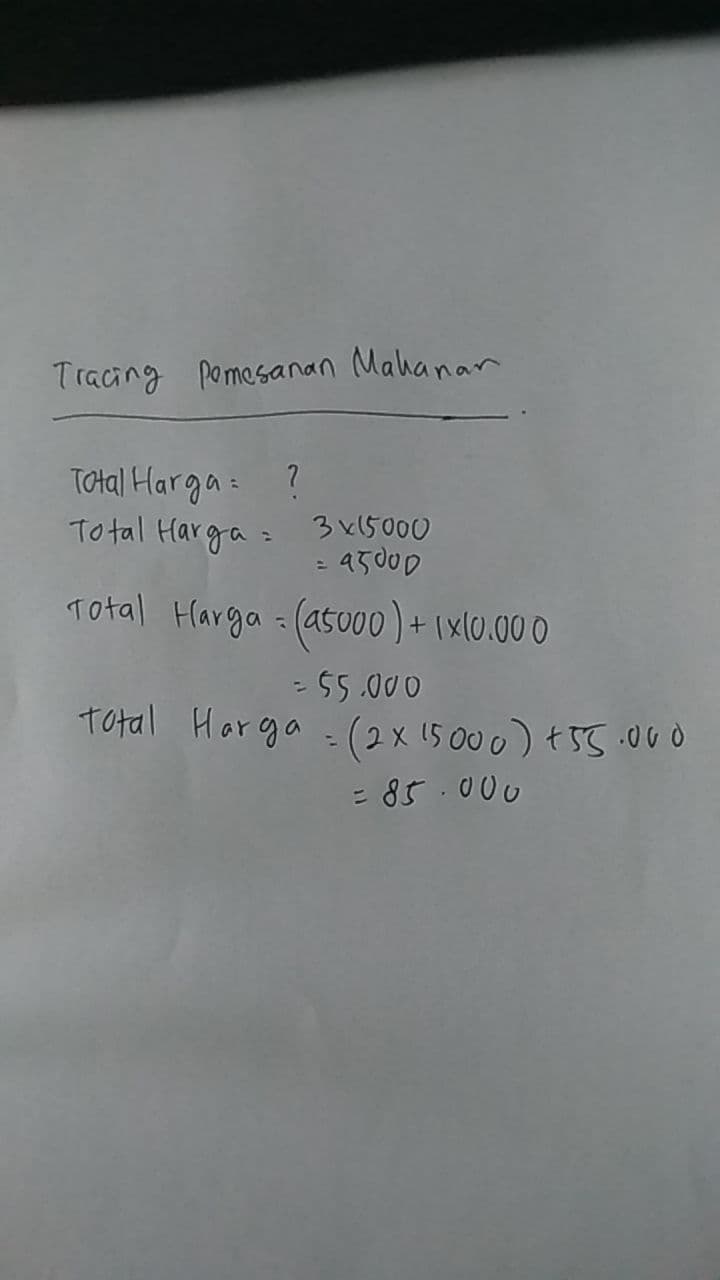 Tracing Pemesanan Makanan
Total Harga = ?
Total Harga = 3 x 15000
= 45000
Total Harga = (45000) + 1x10.000
= 55.000
Total Harga = (2 x 15000) + 55.000
= 85.000